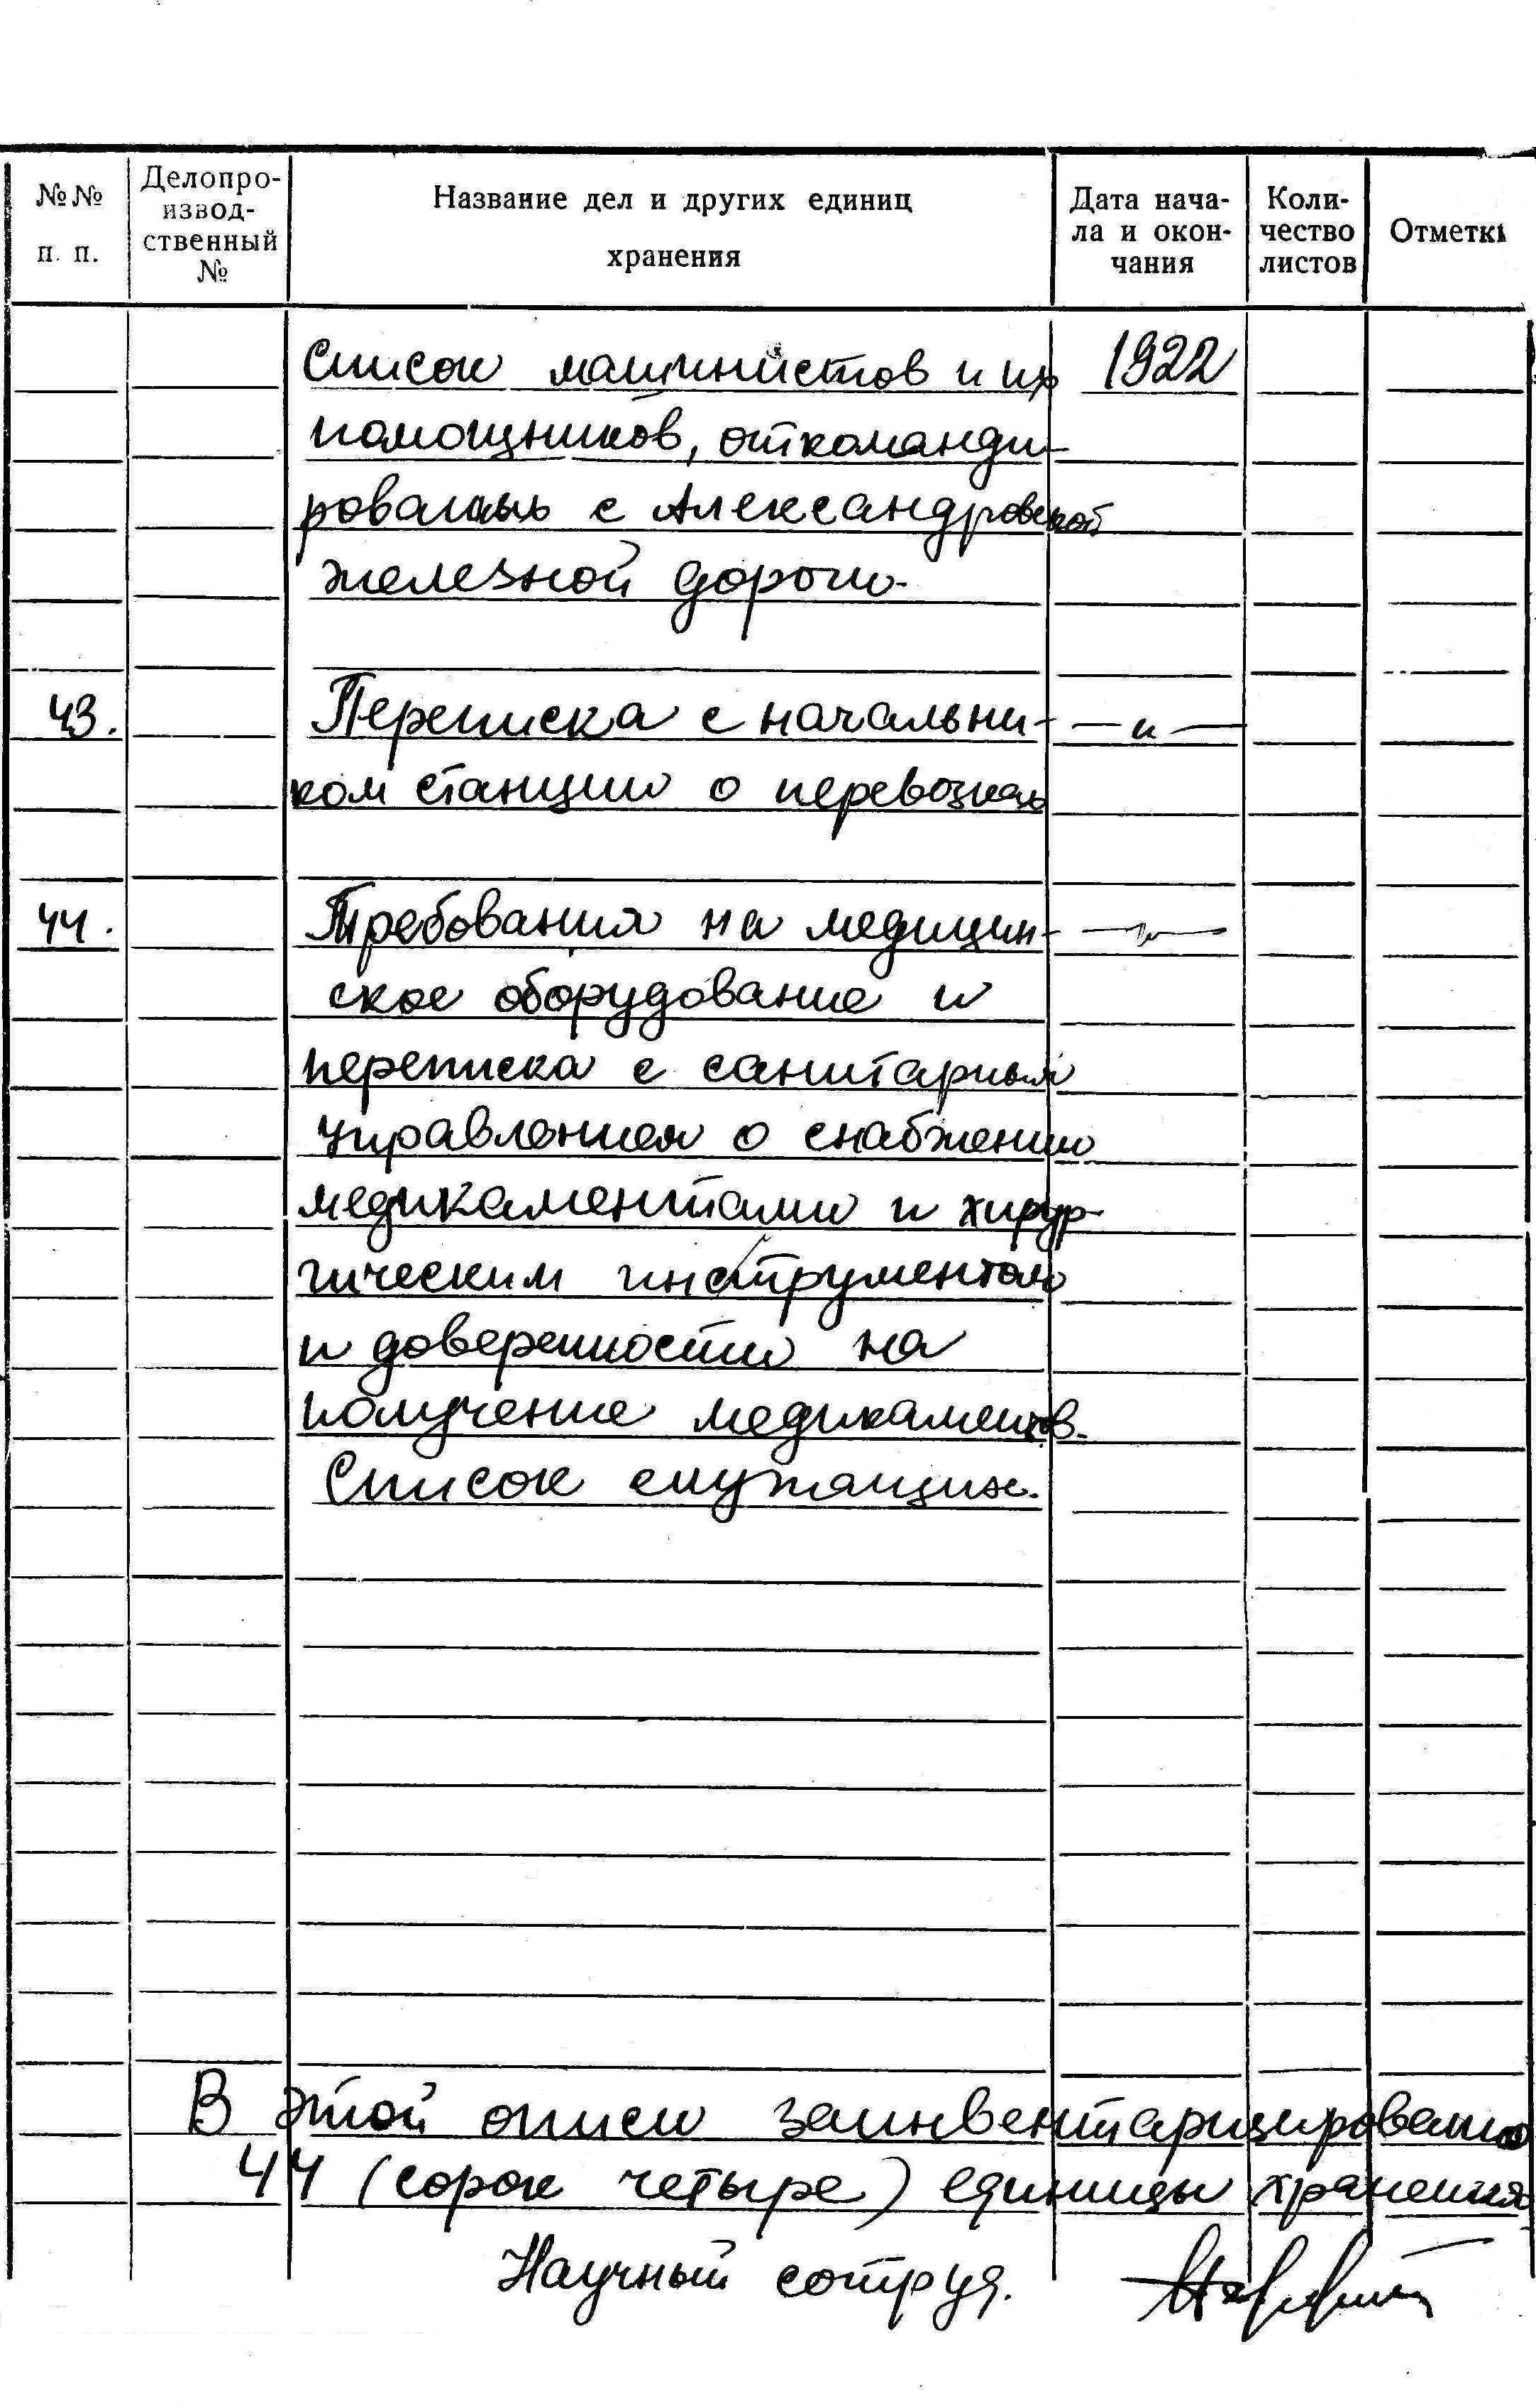 №№ п. п.
Делопро-
извод-
ственный
№
Название дел и других единиц
хранения
Дата нача-
ла и окон-
чания
Коли-
чество
листов
Отметки
Список машинистов и их 1922
помощников, откоманди-
рованных с Александровской
железной дороги.
43. Переписка с начальни- —„—
ком станции о перевозках
44. Требования на медицин- —„—
ское оборудование и
переписка с санитарным
управлением о снабжении
медикаментами и хирур-
гическим инструментом
и доверенности на
получение медикаментов.
Список служащих.
В этой описи заинвентаризировано
44 (сорок четыре) единицы хранения
Научный сотруд.